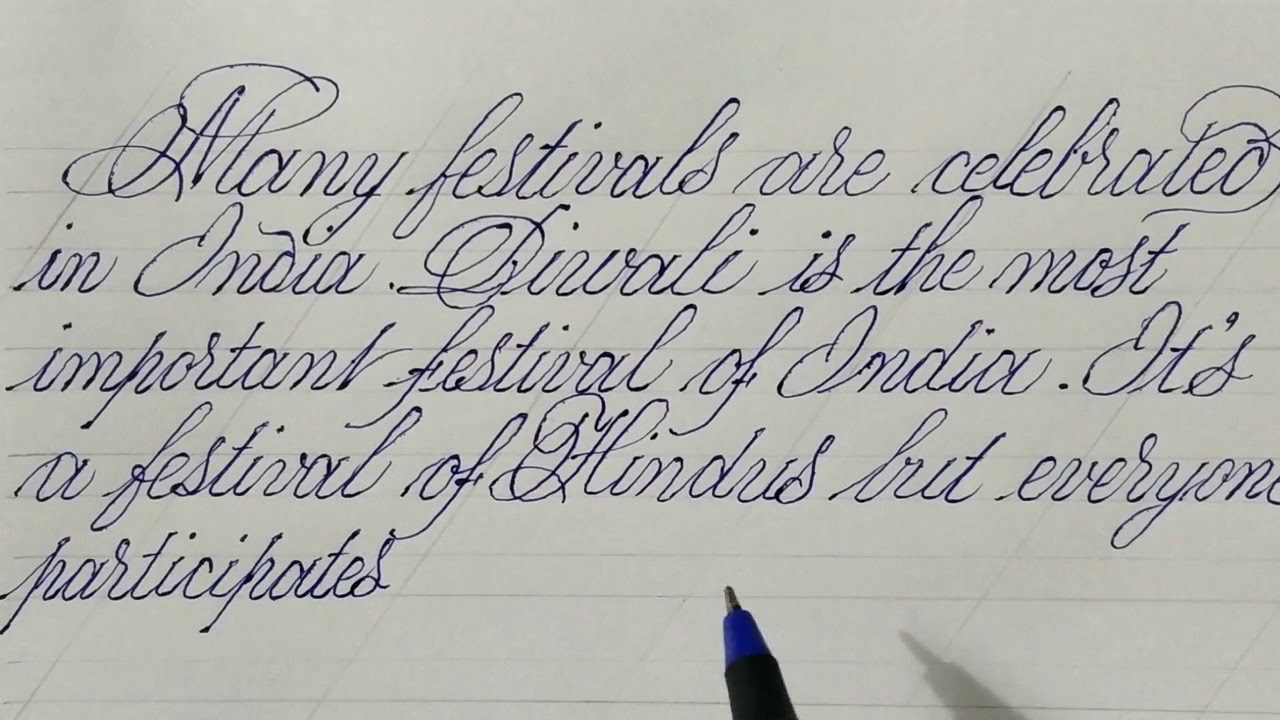 Many festivals are celebrated
in India. Diwali is the most
important festival of India. It's
a festival of Hindus but everyone
participates